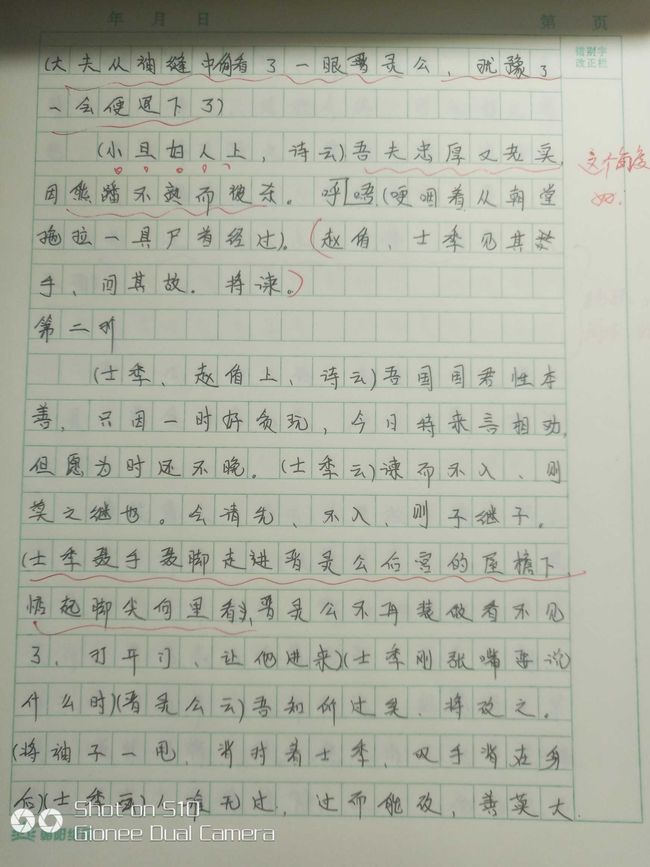 年 月 日 第 页
错别字
改正栏
(大夫从袖缝中偷看了一眼晋灵公,犹豫了
一会便退下了)
(小旦妇人上,诗云)吾夫忠厚又老实,
因熊蹯不熟而被杀。呼唔(哽咽着从朝堂
拖拉一具尸首经过)。(赵盾、士季见其
手,问其故。将谏。)
这个角度
第二折
(士季、赵盾上,诗云)吾国国君性本
善,只因一时好贪玩,今日特来言相劝,
但愿为时还不晚。(士季云)谏而不入,则
莫之继也。会请先,不入,则子继子。
(士季聂手聂脚走进晋灵公后宫的屋檐下
惦起脚尖向里看,晋灵公不再装做看不见
了,打开门,让他进来)(士季刚张嘴要说
什么时)(晋灵公云)吾知所过矣,将改之。
(将袖子一甩,背对着士季,双手背在身
后)(士季云)人谁无过,过而能改,善莫大
Shot on S10
Gionee Dual Camera